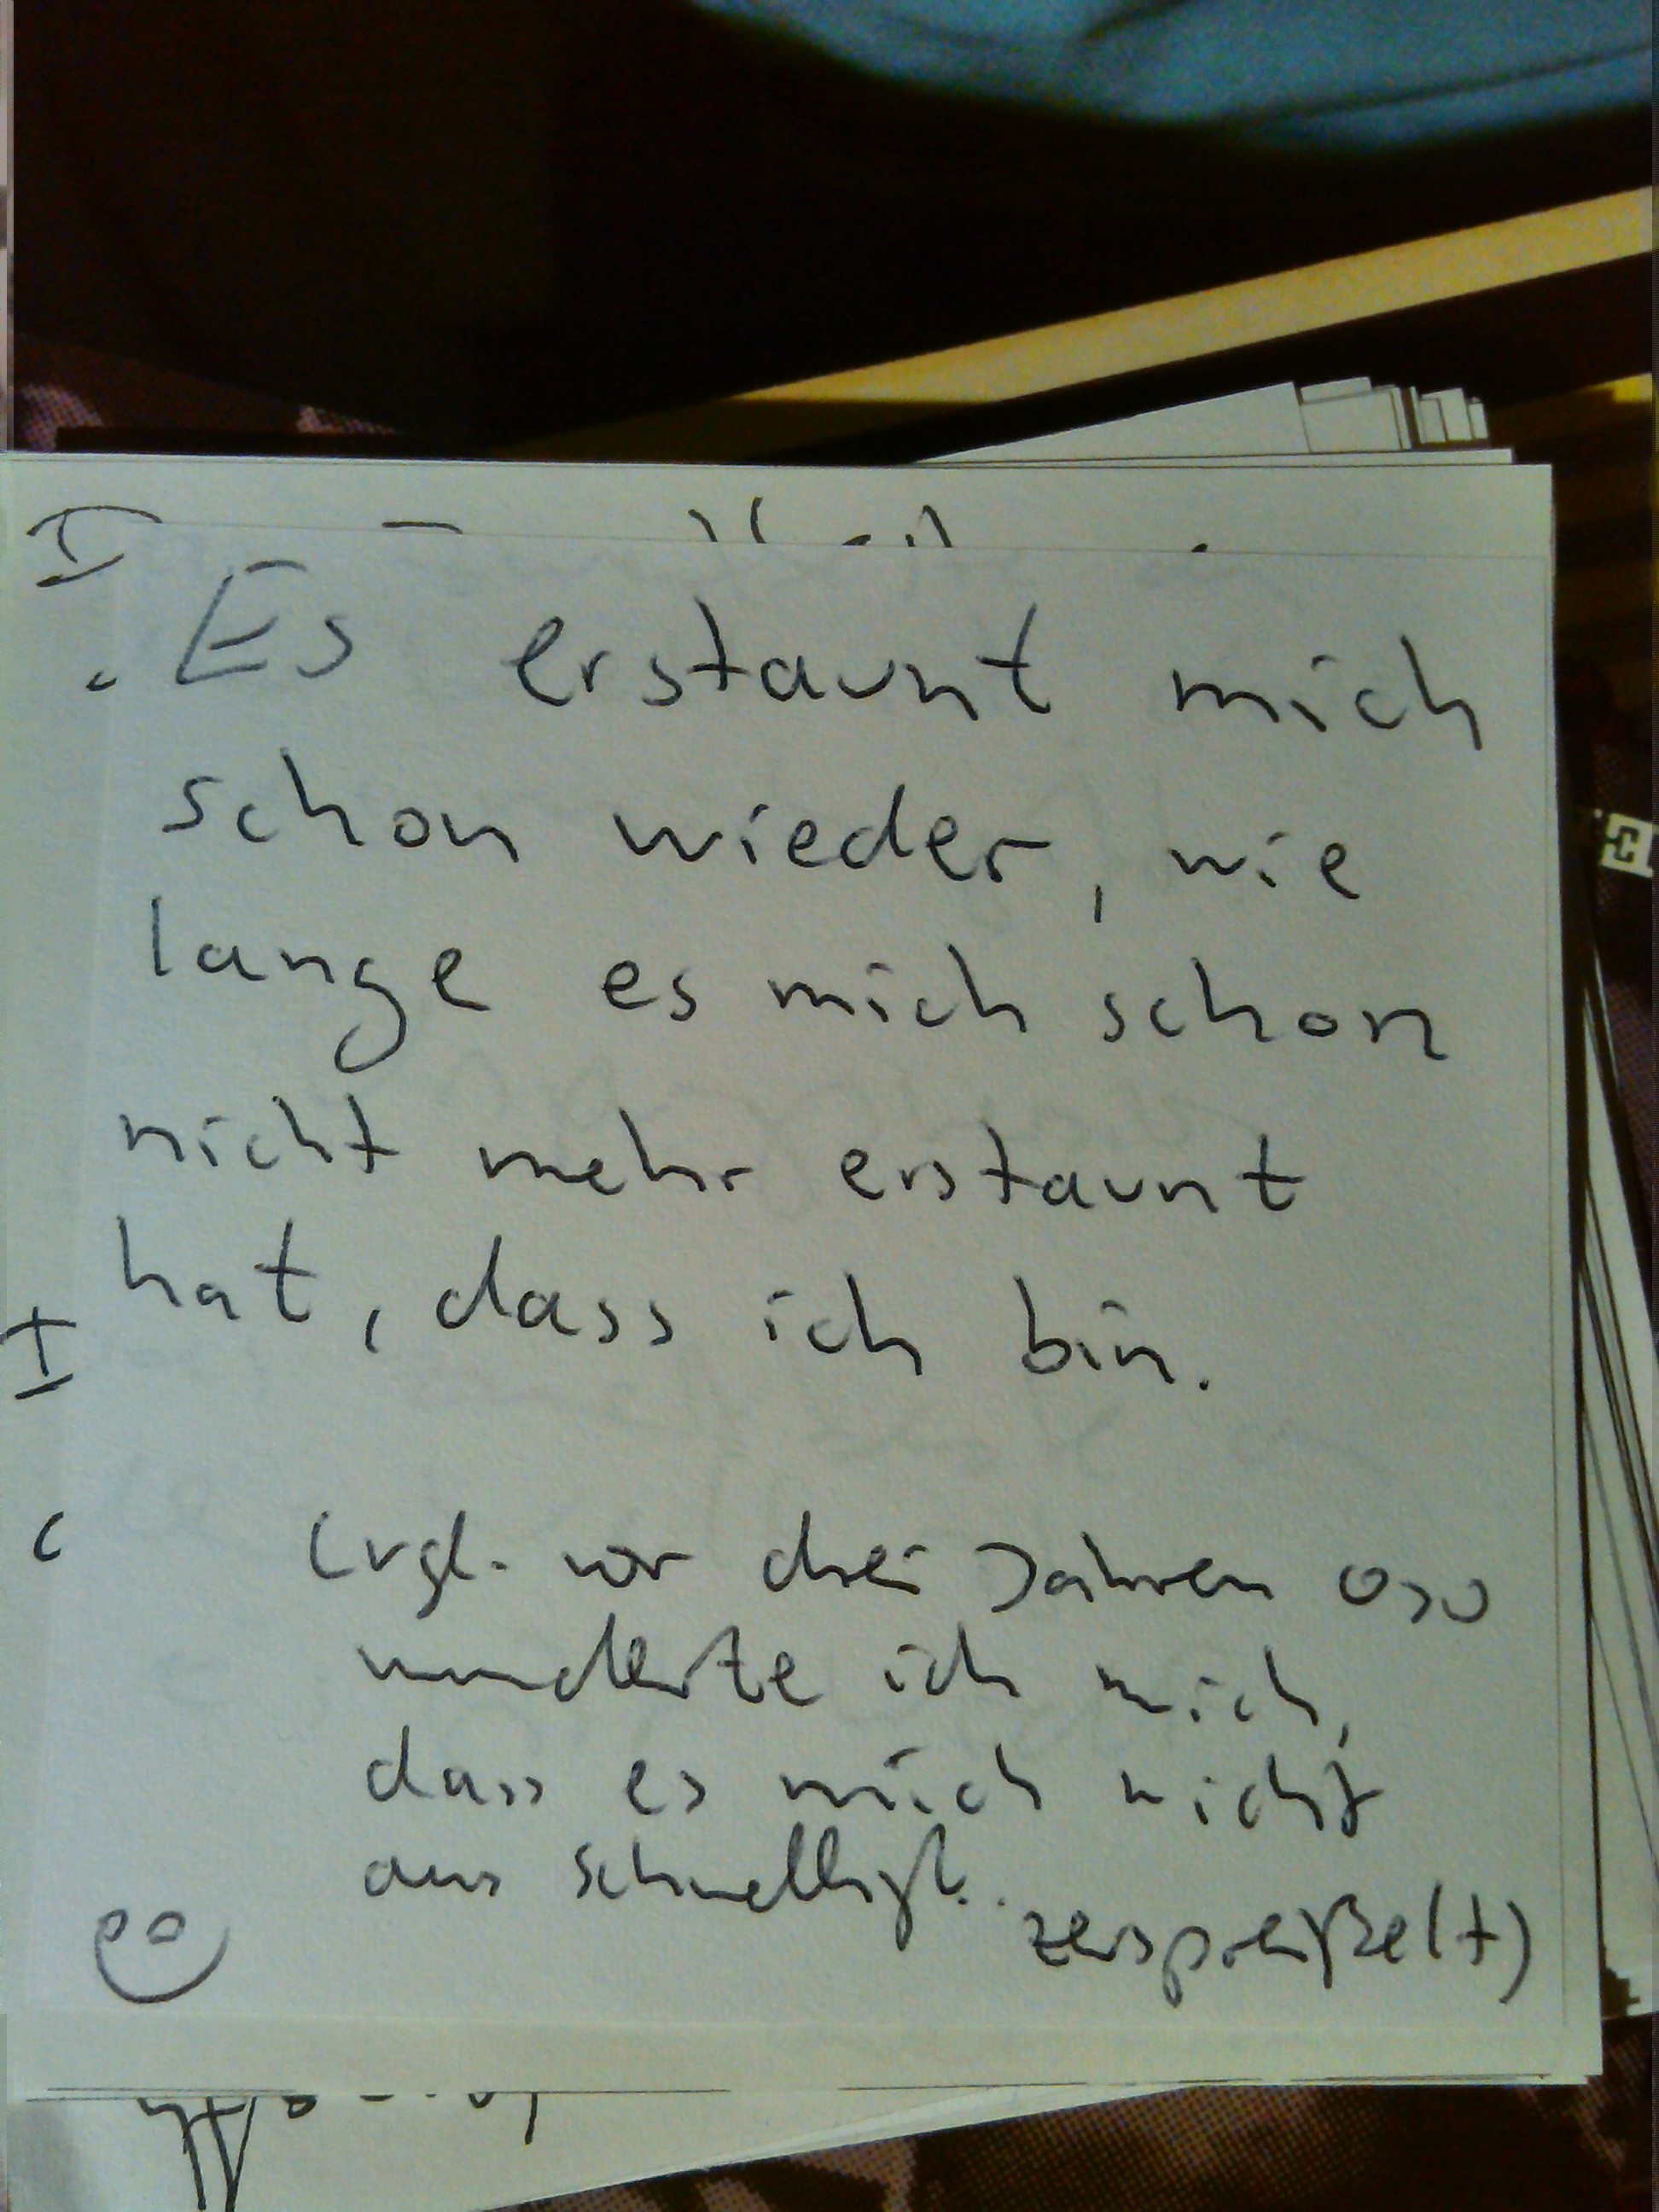 Es erstaunt mich
schon wieder, wie
lange es mich schon
nicht mehr erstaunt
hat, dass ich bin.
(vgl. vor drei Jahren oso
wunderte ich mich,
dass es mich nicht
aus
zerspreißel(t)